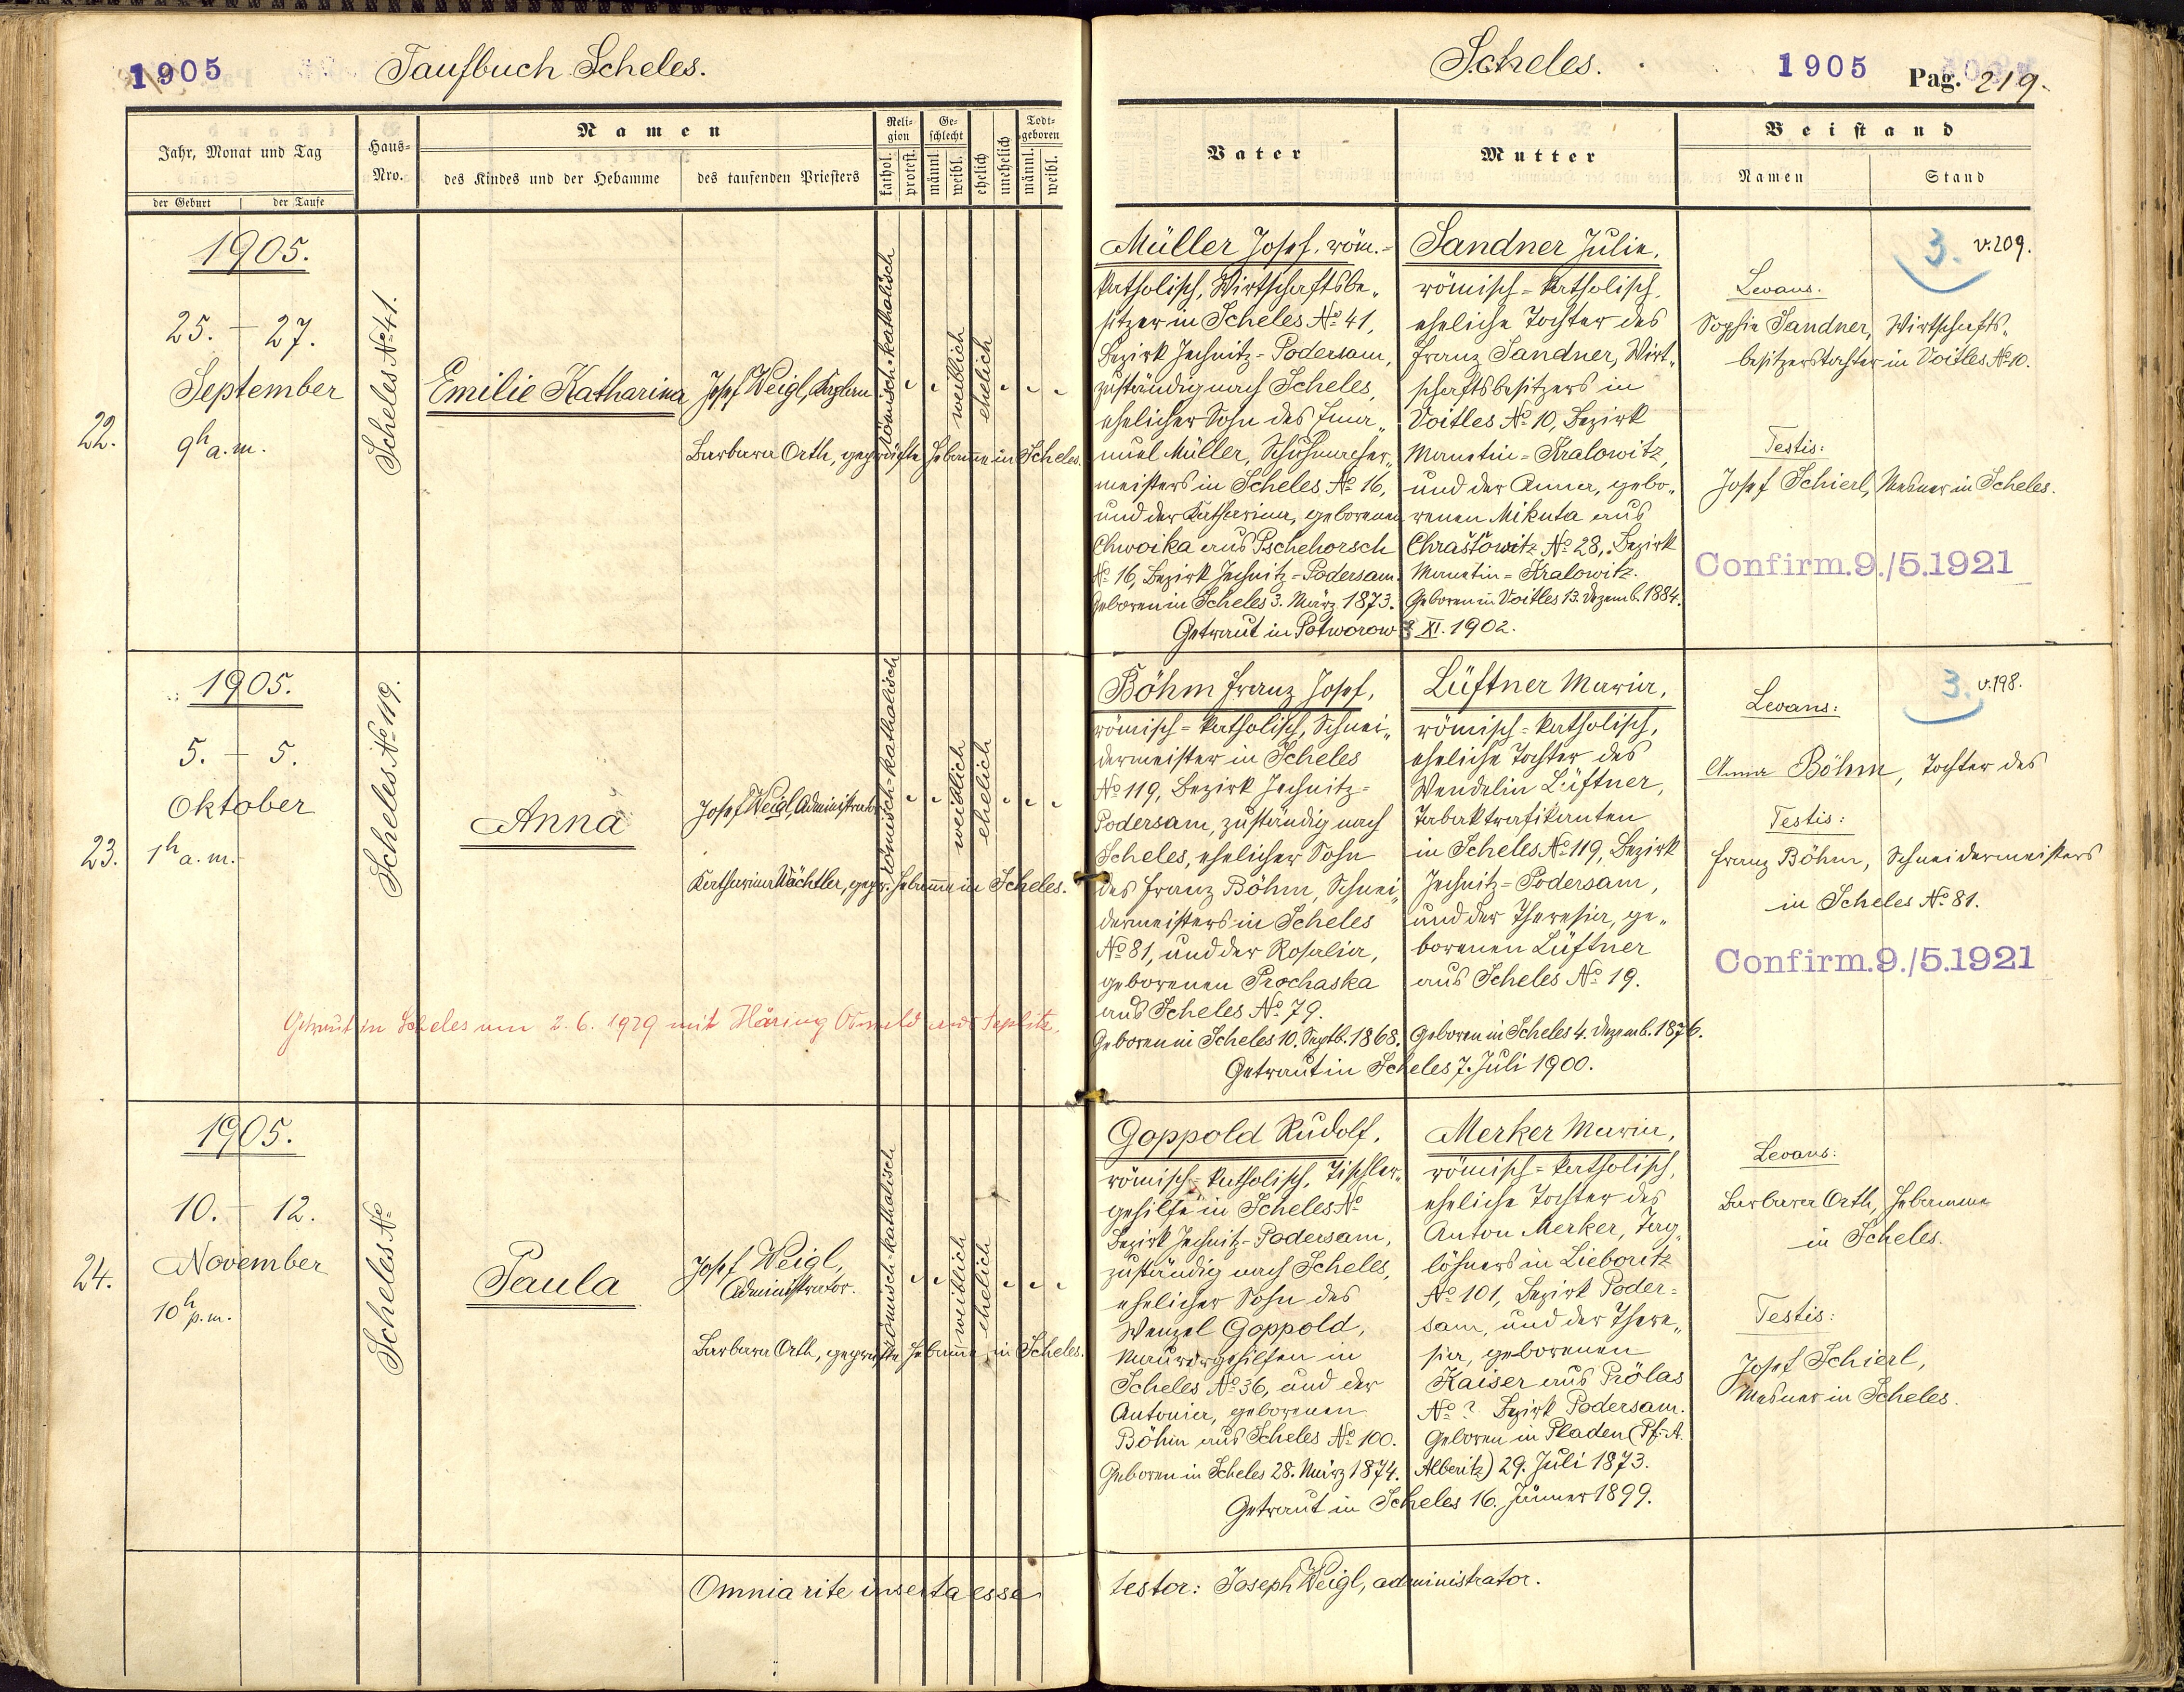 1905
Taufbuch Scheles.
Jahr, Monat und Tag
der Geburt
der Taufe
Haus-
Nro.
Namen
des Kindes und der Hebamme
des taufenden Priesters
Reli-
gion
kathol.
protest.
Ge-
schlecht
männl.
weibl.
ehelich
unehelich
Todt-
geboren
männl.
weibl.
22.
1905.
25. - 27.
September
9h a.m.
Scheles No 41.
Emilie Katharina
Josef Weigl,
römisch-katholisch
weiblich
ehelich
Barbara Orth, geprüfte Hebamme in Scheles.
23.
1905.
5. - 5.
Oktober
1h a.m.
Scheles No 119.
Anna
Josef Weigl, Administrator
römisch-katholisch
weiblich
ehelich
Katharina Wächtler, gepr. Hebamme in Scheles.
Getraut in Scheles am 2.6.1929 mit Häring Oswald aus Teplitz.
24.
1905.
10. - 12.
November
10h p.m.
Scheles No
Paula
Josef Weigl,
Administrator.
römisch-katholisch
weiblich
ehelich
Barbara Orth, geprüfte Hebamme in Scheles.
Omnia rite inserta esse
Scheles.
1905
Pag. 219.
Vater
Mutter
Beistand
Namen
Stand
Müller Josef, röm.-
katholisch, Wirtschaftsbe„
sitzer in Scheles No 41,
Bezirk Jechnitz-Podersam,
zuständig nach Scheles,
ehelicher Sohn des Ema„
nuel Müller, Schuhmacher„
meisters in Scheles No 16,
und der Katharina, geborenen
Chwoika aus Pschehorsch
No 16, Bezirk Jechnitz-Podersam.
Geboren in Scheles 3. März 1873.
Sandner Julie,
römisch-katholisch,
eheliche Tochter des
Franz Sandner, Wirt„
schaftsbesitzers in
Voitles No 10, Bezirk
Manetin-Kralowitz,
und der Anna, gebo„
renen Mikuta aus
Chrastowitz No 28, Bezirk
Manetin-Kralowitz.
Geboren in Voitles 13. Dezemb. 1884.
Getraut in Potworow XI. 1902.
3. v. 209.
Levans.
Sophie Sandner, Wirtschafts„
besitzerstochter in Voitles No 10.
Testis:
Josef Schierl, Mesner in Scheles.
Confirm.9./5.1921
Böhm Franz Josef,
römisch-katholisch, Schnei„
dermeister in Scheles
No 119, Bezirk Jechnitz-
Podersam, zuständig nach
Scheles, ehelicher Sohn
des Franz Böhm, Schnei„
dermeisters in Scheles
No 81, und der Rosalia,
geborenen Prochaska
aus Scheles No 79.
Geboren in Scheles 10. Septb. 1868.
Lüftner Maria,
römisch-katholisch,
eheliche Tochter des
Wendelin Lüftner,
Tabaktrafikanten
in Scheles No 119, Bezirk
Jechnitz-Podersam,
und der Theresia, ge„
borenen Lüftner
aus Scheles No 19.
Geboren in Scheles 4. Dezemb. 1876.
Getraut in Scheles 7. Juli 1900.
3. v. 198.
Levans:
Anna Böhm, Tochter des
Testis:
Franz Böhm, Schneidermeisters
in Scheles No 81.
Confirm.9./5.1921
Goppold Rudolf,
römisch-katholisch, Tischler„
gehilfe in Scheles No
Bezirk Jechnitz-Podersam,
zuständig nach Scheles,
ehelicher Sohn des
Wenzel Goppold,
Maurergehilfen in
Scheles No 36, und der
Antonia, geborenen
Böhm aus Scheles No 100.
Geboren in Scheles 28. März 1874.
Merker Maria,
römisch-katholisch,
eheliche Tochter des
Anton Merker, Tag„
löhners in Lieboritz
No 101, Bezirk Poder-
sam, und der There„
sia, geborenen
Kaiser aus Prölas
No ? Bezirk Podersam.
Geboren in Pladen (Pf.-A.
Alberitz) 29. Juli 1873.
Getraut in Scheles 16. Jänner 1899.
Levans:
Barbara Orth, Hebamme
in Scheles.
Testis:
Josef Schierl,
Mesner in Scheles.
testor: Joseph Weigl, administrator.